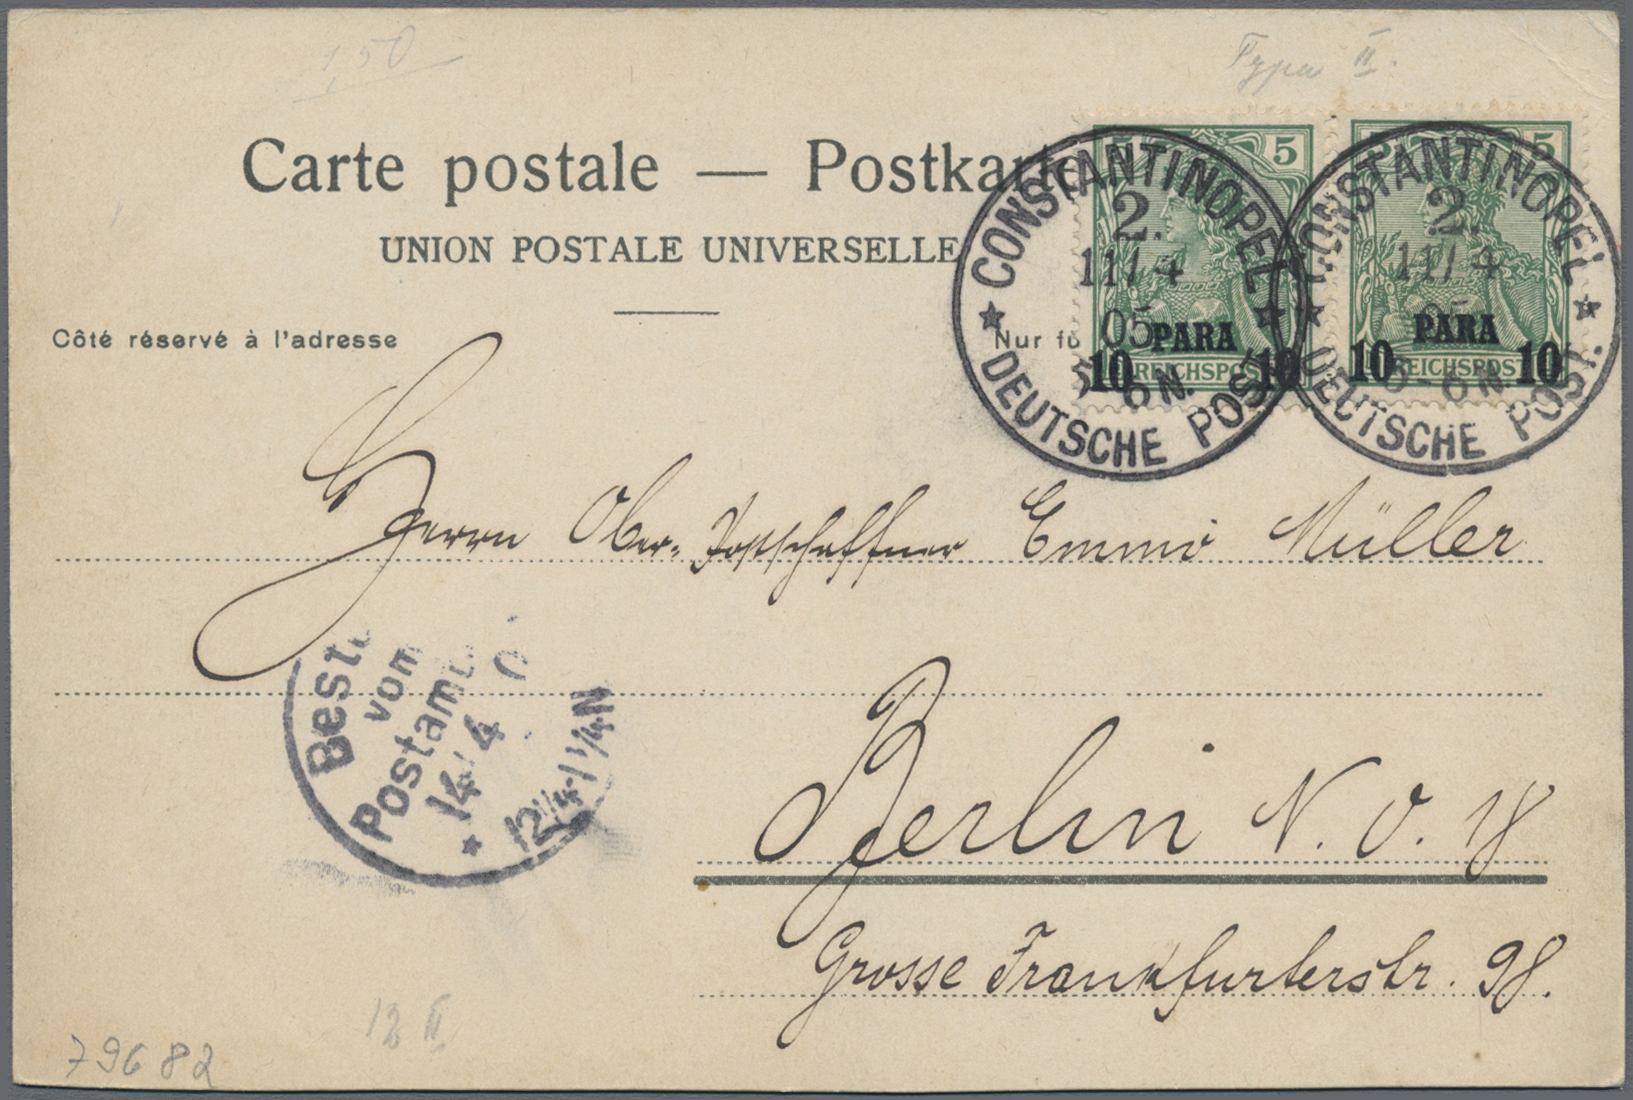 1,50
Type II.
Carte postale — Postkarte
UNION POSTALE UNIVERSELLE
Côté réservé à l'adresse
Nur fü
5 5
10 PARA 10
REICHSPOST
CONSTANTINOPEL
2.
11/4
05
5-6N.
★ DEUTSCHE POST. ★
5 5
10 PARA 10
REICHSPOST
CONSTANTINOPEL
2.
11/4
05
5-6N.
★ DEUTSCHE POST. ★
Herrn Ober-Postschaffner Müller
Best
vom
Postamt
14 4 0
★ 12¼-1¼N
Berlin N.O. 18
Grosse Frankfurterstr. 98.
12 II
79682